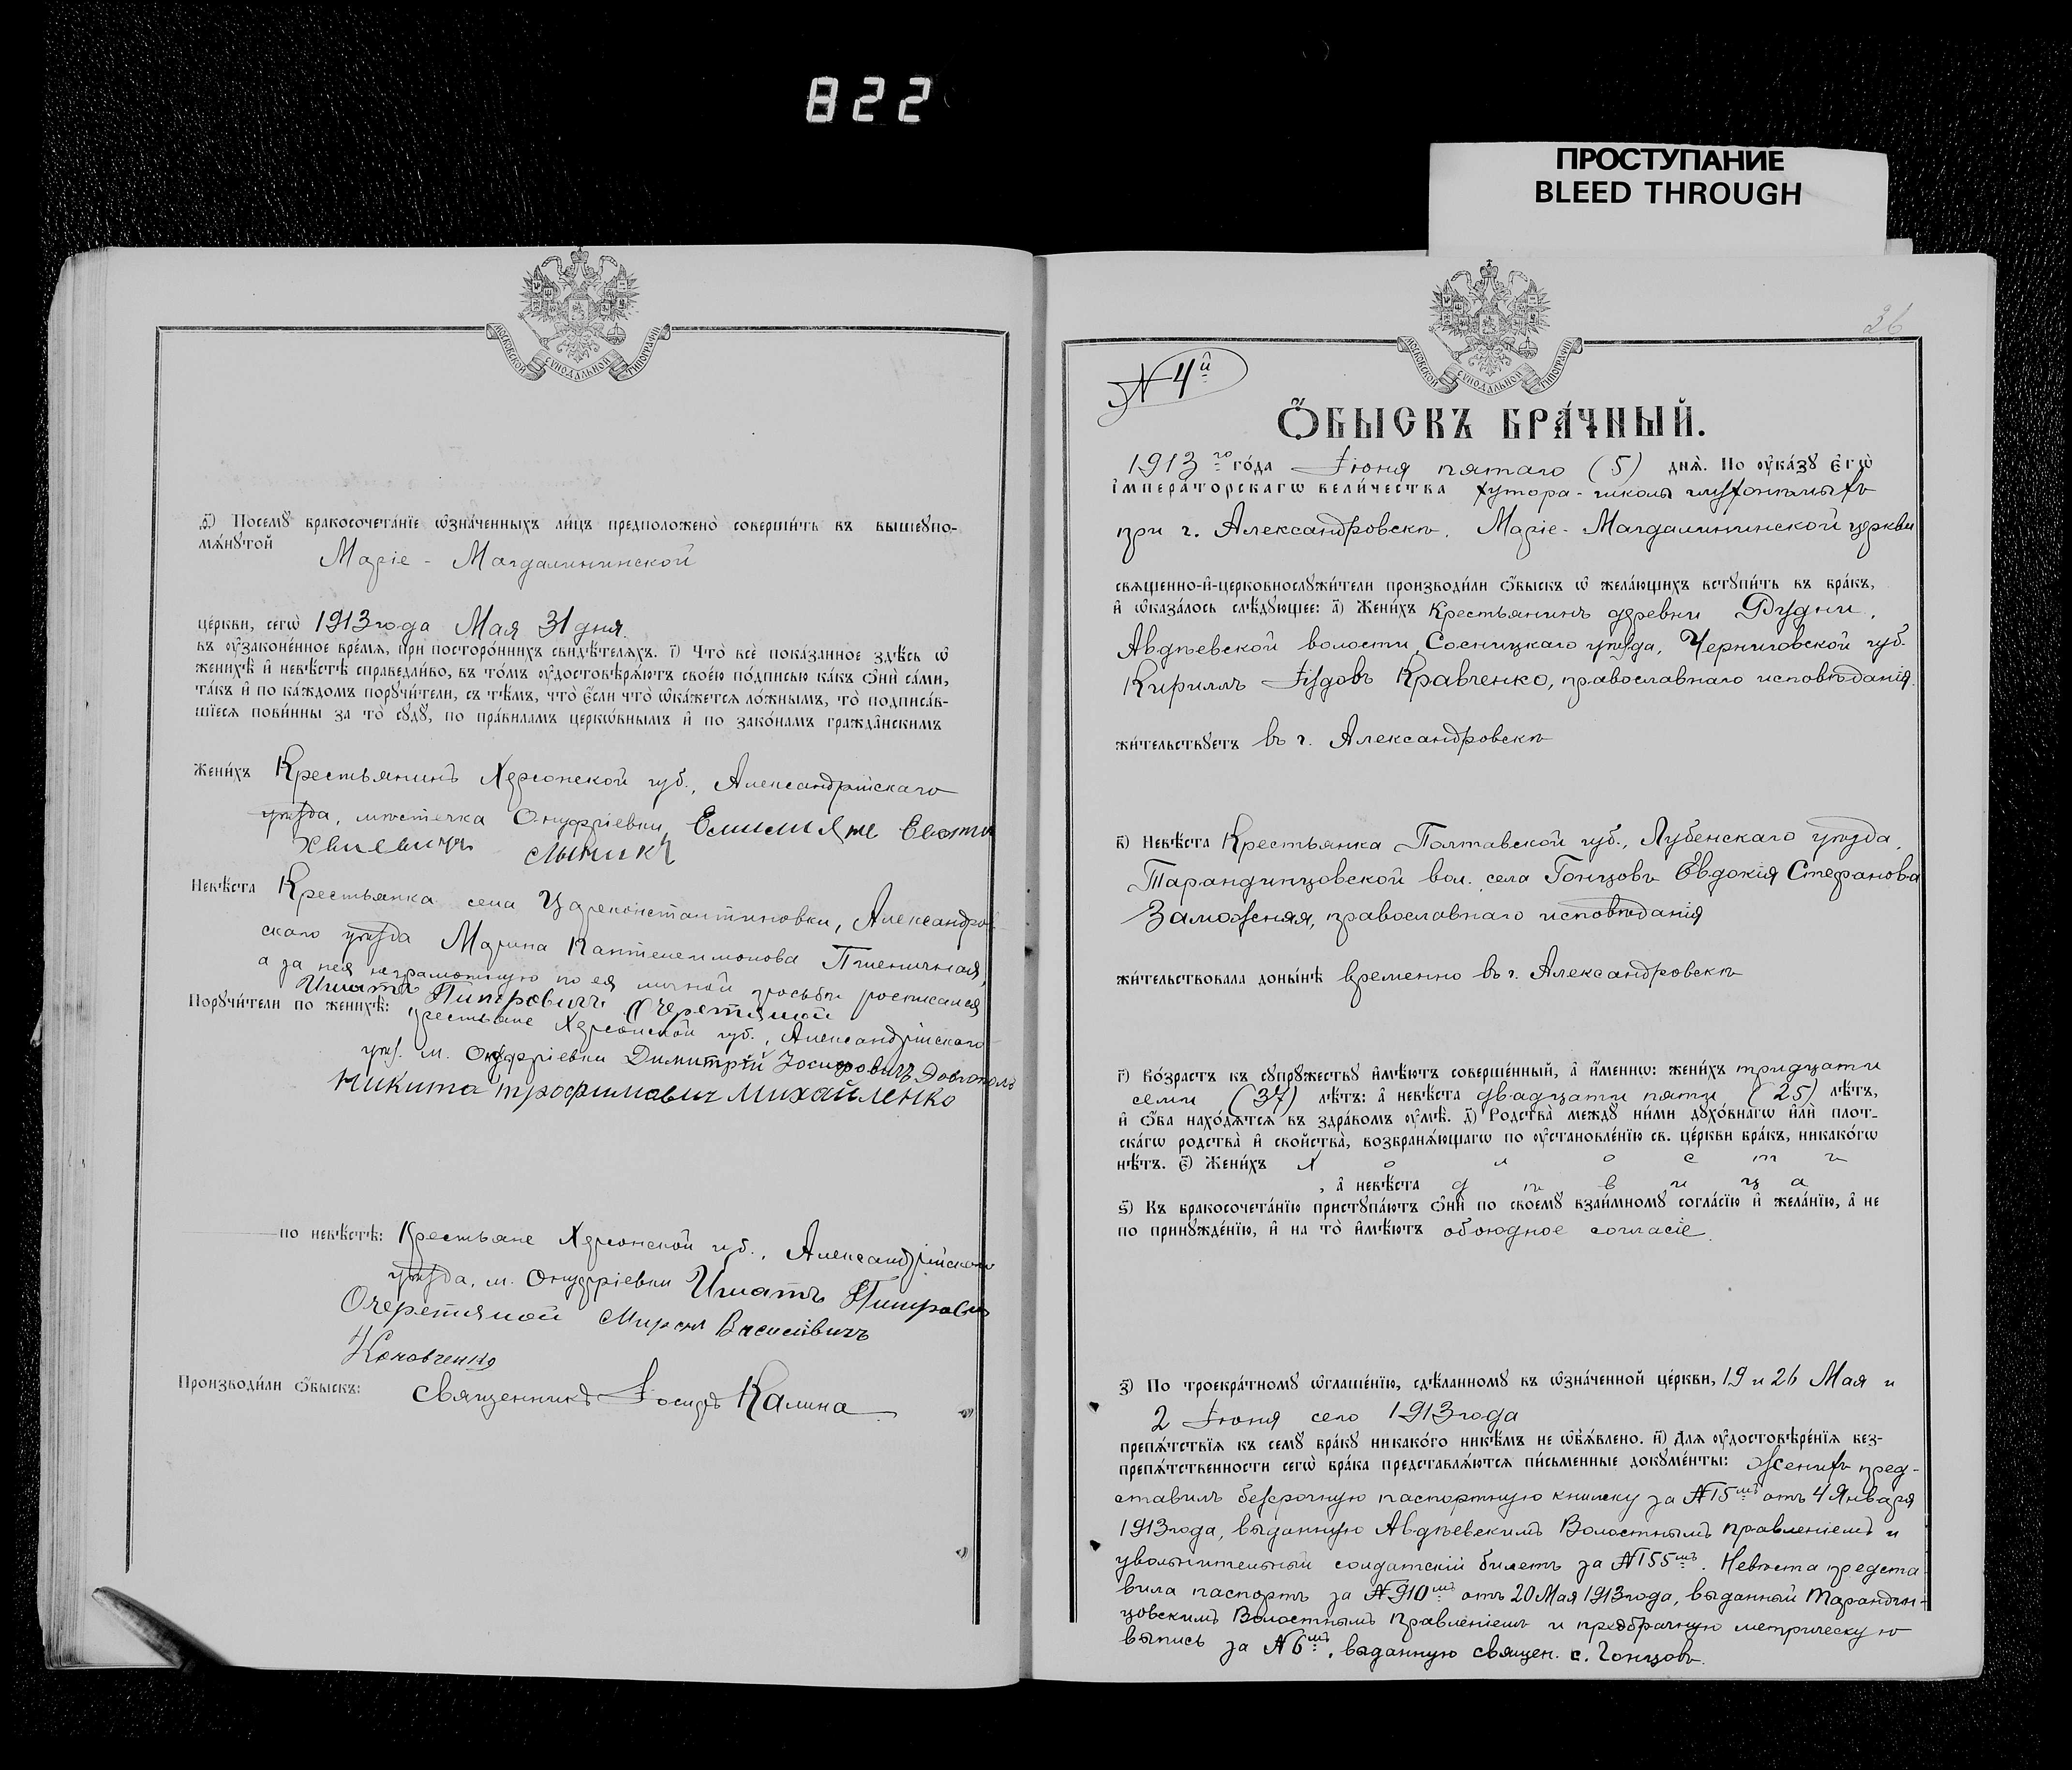 822
ПРОСТУПАНИЕ
BLEED THROUGH
МОСКОВСКОЙ СѴНОДАЛЬНОЙ ТИПОГРАФІИ
ѳ҃) Посемꙋ бракосочета́нїе ѡ҆зна́ченныхъ ли́цъ предположено̀ соверши́ть въ вышеꙋпо-
мѧ́нꙋтой
Маріе - Магдалининской
це́ркви, сегѡ̀ 1913 года Мая 31 дня.
въ ᲂу҆зако́ненное вре́мѧ, при посторо́ннихъ свидѣ́телѧхъ. і҃) Что̀ всѐ пока́занное здѣ́сь ѡ҆
женихѣ̀ и҆ невѣ́стѣ справедли́во, въ то́мъ ᲂу҆достовѣрѧ́ютъ свое́ю по́дписью ка́къ ѻ҆нѝ са́ми,
та́къ и҆ по ка́ждомъ порꙋчи́тели, съ тѣ́мъ, что̀ є҆́сли что̀ ѡ҆ка́жетсѧ ло́жнымъ, то̀ подписа́в-
шїесѧ пови́нны за то̀ сꙋдꙋ̀, по пра́виламъ церкѡ́внымъ и҆ по зако́намъ гражда̑нскимъ
Жени́хъ Крестьянинъ Херсонской губ., Александрійскаго
уѣзда, мѣстечка Онуфріевки,
Невѣ́ста Крестьянка села Цареконстантиновки, Александров-
скаго уѣзда Марина Пантелеимонова Пшеничная,
а за нея неграмотную по ея личной просьбѣ росписался
Игнатъ Питровичъ Очеретяной
Порꙋчи́тели по женихѣ̀: крестьяне Херсонской губ., Александрійскаго
уѣз. м. Онуфріевки Димитрій Іосифовичъ Довгополъ
Никита трофимович Михайленко
по невѣ́стѣ: Крестьяне Херсонской губ., Александрійскаго
уѣзда, м. Онуфріевки Игнатъ Питрович
Очеретяной Мирон Василівичъ
Коновченко
Производи́ли ѻ҆́быскъ: священникъ Іосифъ Калина
МОСКОВСКОЙ СѴНОДАЛЬНОЙ ТИПОГРАФІИ
26
№ 4й
Ѻ҆́БЫСКЪ БРА́ЧНЫЙ.
1913го го́да Іюня пятаго (5) днѧ̀. По ᲂу҆ка́зꙋ є҆гѡ̀
і҆мпера́торскагѡ вели́чества хутора - школы глухонѣмыхъ
при г. Александровскѣ, Маріе - Магдалининской церкви
свѧщенно-и҆-церковнослꙋжи́тели производи́ли ѻ҆́быскъ ѡ҆ жела́ющихъ встꙋпи́ть въ бра́къ,
и҆ ѡ҆каза́лось слѣ́дꙋющее: а҃) Жени́хъ Крестьянинъ деревни Рудни,
Авдѣевской волости, Сосницкаго уѣзда, Черниговской губ.
Кириллъ Іудовъ Кравченко, православнаго исповѣданія.
жи́тельствꙋетъ въ г. Александровскѣ
в҃) Невѣ́ста Крестьянка Полтавской губ., Лубенскаго уѣзда,
Тарандинцовской вол. села Гонцовъ Евдокія Стефанова
Заможняя, православнаго исповѣданія
жи́тельствовала доны́нѣ временно въ г. Александровскѣ
г҃) Во́зрастъ къ сꙋпрꙋ́жествꙋ и҆мѣ́ютъ соверше́нный, а҆ и҆́меннѡ: жени́хъ тридцати
семи (37) лѣ́тъ: а҆ невѣ́ста двадцати пяти (25) лѣ́тъ,
и҆ ѻ҆́ба нахо́дѧтсѧ въ здра́вомъ ᲂу҆мѣ̀. д҃) Родства̀ междꙋ ни́ми дꙋхо́внагѡ и҆лѝ плот-
ска́гѡ родства̀ и҆ свойства̀, возбранѧ́ющагѡ по ᲂу҆становле́нїю св. це́ркви бра́къ, никако́гѡ
нѣ́тъ. є҃) Жени́хъ х о л о с т ъ
, а҆ невѣ́ста д ѣ в и ц а
ѕ҃) Къ бракосочета́нїю пристꙋпа́ютъ ѻ҆нѝ по своемꙋ̀ взаи́мномꙋ согла́сїю и҆ жела́нїю, а҆ не
по принꙋжде́нїю, и҆ на то̀ и҆мѣ́ютъ обоюдное согласіе.
з҃) По троекра́тномꙋ ѡ҆глаше́нїю, сдѣ́ланномꙋ въ ѡ҆зна́ченной це́ркви, 19 и 26 Мая и
2 Іюня сего 1913 года
препѧ́тствїѧ къ семꙋ̀ бра́кꙋ никако́го никѣ́мъ не ѡ҆б̾ѧ́влено. и҃) Для ᲂу҆достовѣре́нїѧ без-
препѧ́тственности сегѡ̀ бра́ка представлѧ́ютсѧ пи́сьменные докꙋме́нты: Женихъ пред-
ставилъ безсрочную паспортную книжку за №15мъ отъ 4 Января
1913 года, выданную Авдѣевскимъ Волостнымъ правленіемъ и
увольнительный солдатскій билетъ за №155мъ. Невѣста предста-
вила паспортъ за №910мъ отъ 20 Мая 1913 года, выданный Тарандин-
цовскимъ Волостнымъ Правленіемъ и предбрачную метрическую
выпись за №6мъ, выданную священ. с. Гонцовъ.